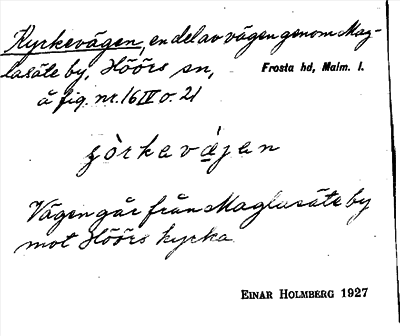 Kyrkevägen, en del av vägen genom Mag-
lasäte by, Höörs sn, Frosta hd, Malm. l.
å fig. nr. 16 IV o. 21
Vägen går från Maglasäte by
mot Höörs kyrka
EINAR HOLMBERG 1927